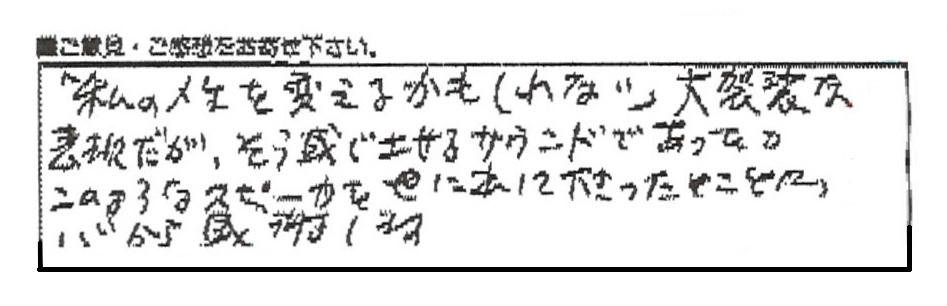 ■ご意見・ご感想をお寄せ下さい。
「私の人生を変えるかもしれない」大袈裟な
表現だが、そう感じさせるサウンドであった。
このようなスピーカを世に出して下さったことを
心から感謝します